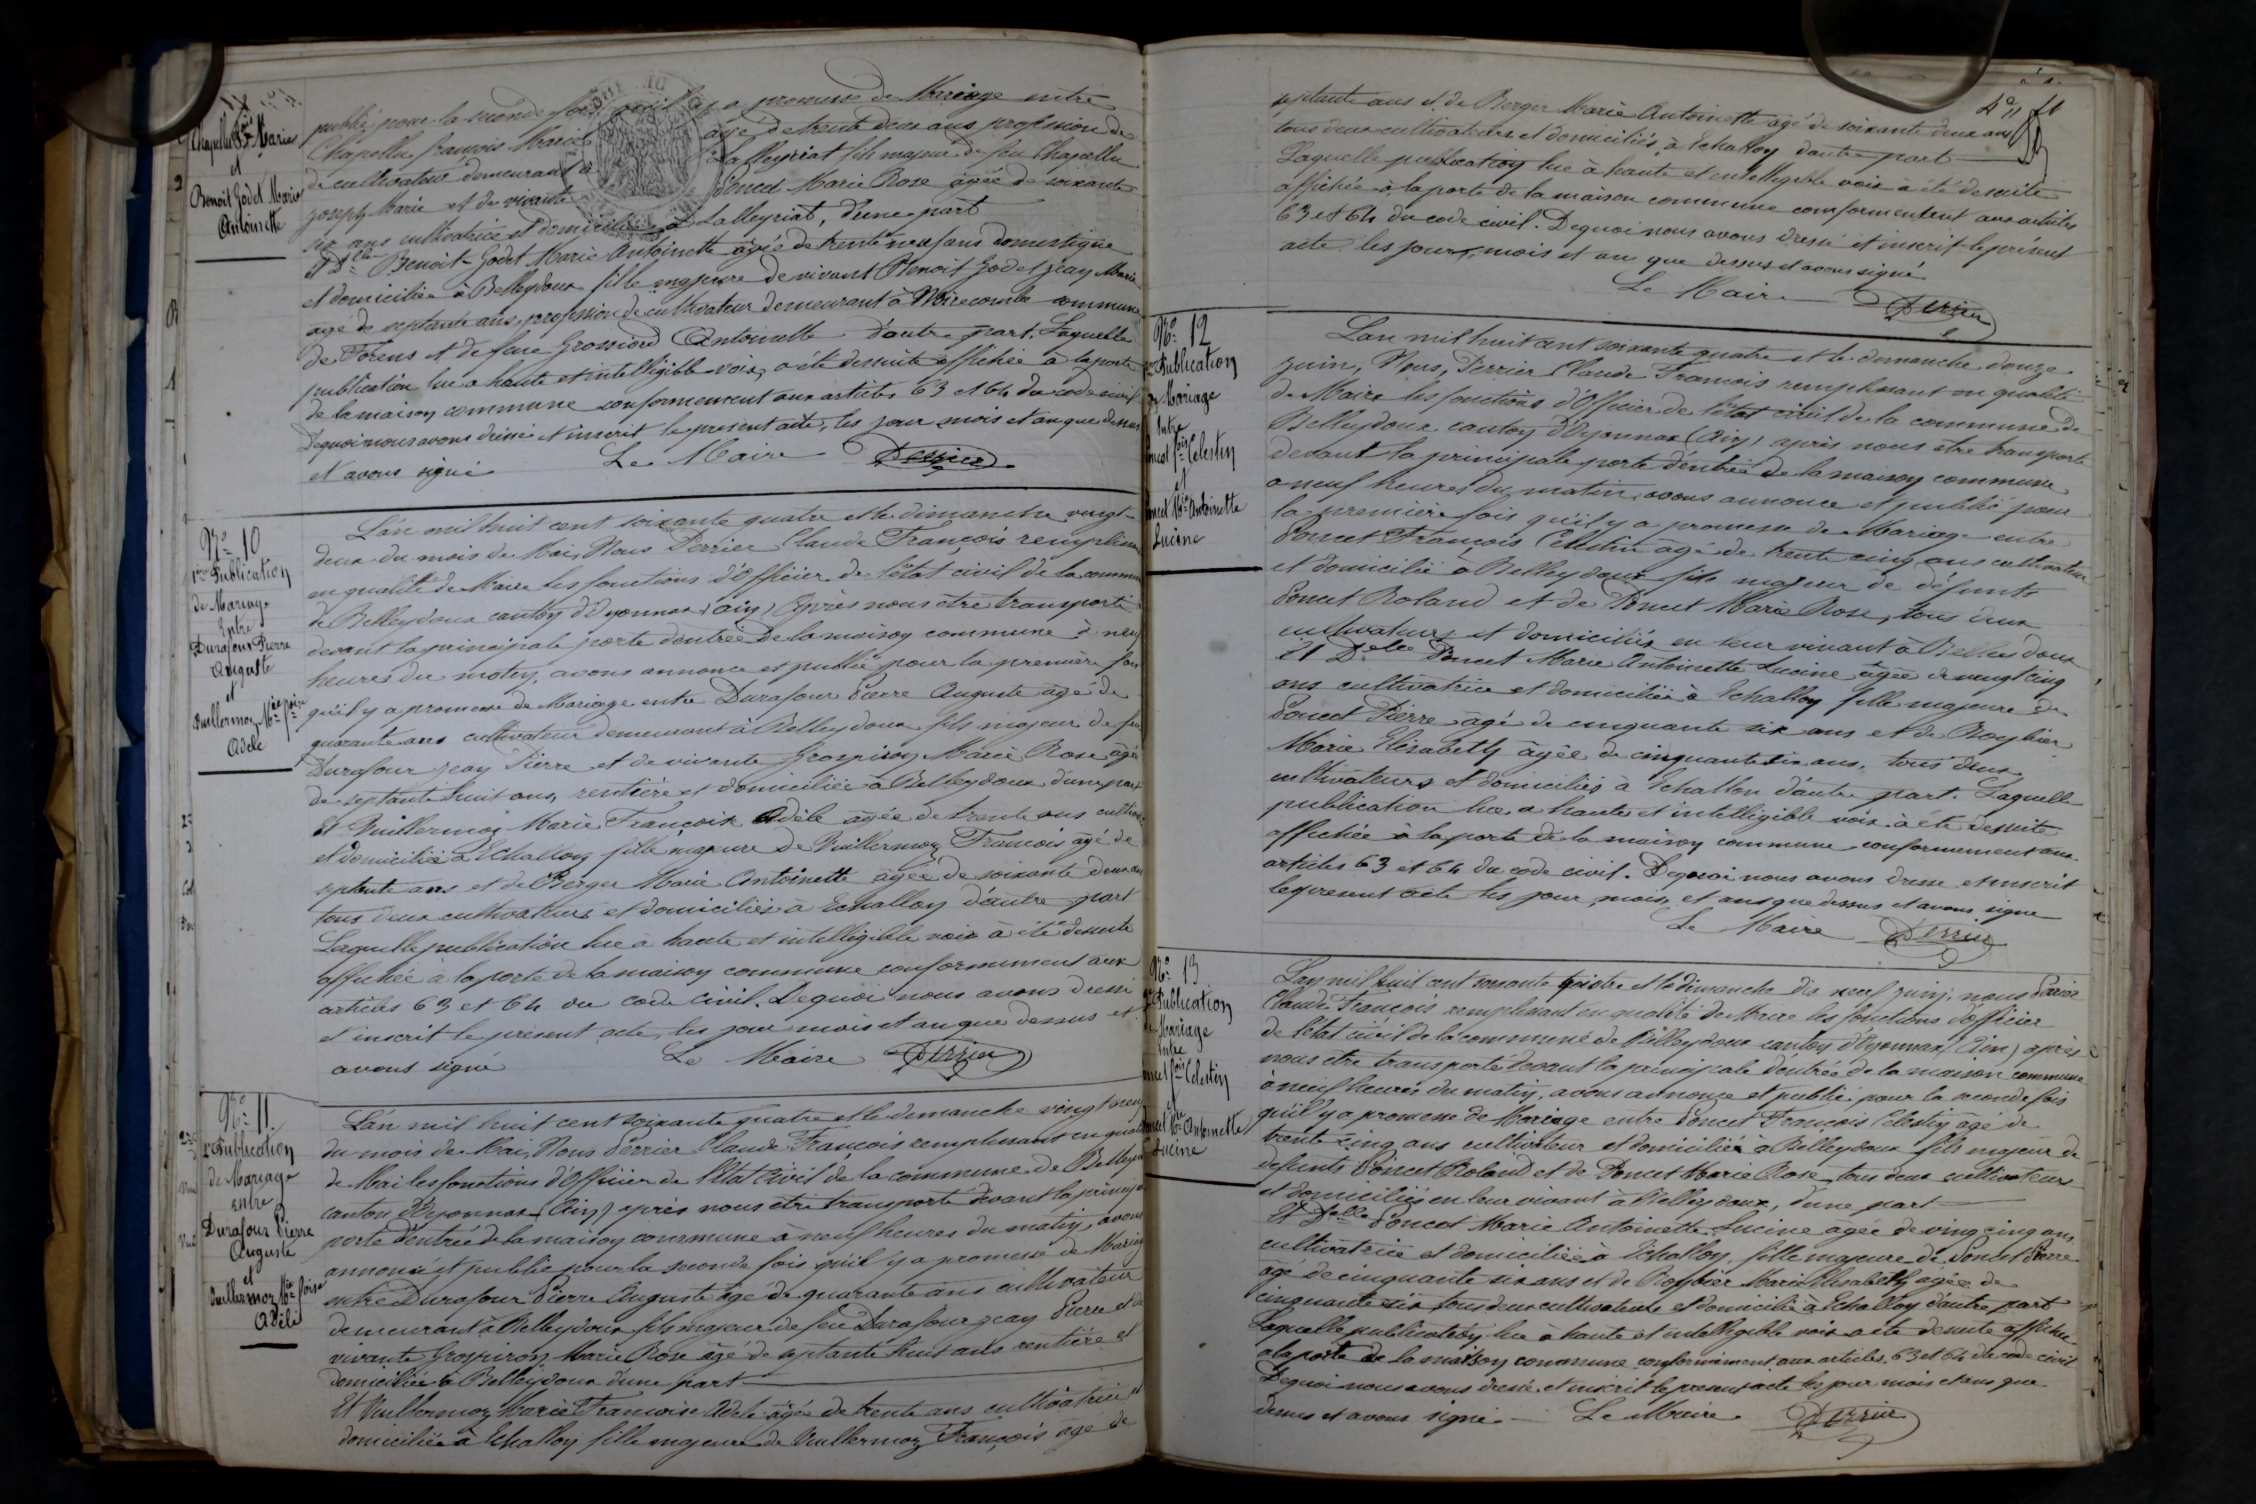 Chapelle F.ois Marie
et
Benoit Godet Marie
Antoinette
publié pour la seconde fois qu'il y a promesse de Mariage entre
Chapelle françois Marie âgé de trente deux ans profession de
de cultivateur demeurant à Lalleyriat fils majeur de feu Chapelle
joseph Marie et de vivante Poncet Marie Rose âgée de soixante
six ans cultivatrice et domiciliée à Lalleyriat, d'une part
Et D.lle Benoit-Godet Marie Antoinette âgée de trente neuf ans domestique
et domiciliée à Belleydoux fille majeure de vivant Benoit Godet jean Marie
âgé de septante ans, profession de cultivateur demeurant à Noirecombe commune
de Forens et de feue Grossiord Antoinette d'autre part. Laquelle
publication lue a haute et intelligible voix, a été dessuite affichée à la porte
de la maison commune conformément aux articles 63 et 64 du code civil
Dequoi nous avons dressé et inscrit le présent acte, les jour mois et an que dessus
et avons signé Le Maire Perrier
N.o 10
1re Publication
de Mariage
Entre
Durafour Pierre
Auguste
et
Vuillermoz M.ie f.oise
Adèle
L'an mil huit cent soixante quatre et le dimanche vingt
deux du mois de Mai, Nous Perrier Claude François remplissant
en qualité de Maire les fonctions d'Officier de l'état civil de la commune
de Belleydoux canton d'Oyonnax (Ain) Après nous être transporté
devant la principale porte d'entrée de la maison commune à neuf
heures du matin, avons annoncé et publié pour la première fois
qu'il y a promesse de Mariage entre Durafour Pierre Auguste âgé de
quarante ans cultivateur demeurant à Belleydoux fils majeur de feu
Durafour jean Pierre et de vivante Grospiron Marie Rose âgée
de septante huit ans, rentière et domiciliée à Belleydoux d'une part
Et Vuillermoz Marie Françoise Adèle âgée de trente ans cultivatrice
et domiciliée à Echallon fille majeure de Vuillermoz François âgé de
septante ans et de Berger Marie Antoinette âgée de soixante deux ans
tous deux cultivateurs et domiciliés à Echallon d'autre part
Laquelle publication lue à haute et intelligible voix à été dessuite
affichée à la porte de la maison commune conformément aux
articles 63 et 64 du code civil. Dequoi nous avons dressé
et inscrit le présent acte, les jour mois et an que dessus et
avons signé Le Maire Perrier
N.o 11.
2e Publication
de Mariage
entre
Durafour Pierre
Auguste
et
Vuillermoz M.ie f.oise
Adèle
L'an mil huit cent soixante quatre et le dimanche vingt neuf
du mois de Mai, Nous Perrier Claude François remplissant en qualité
de Mai les fonctions d'Officier de l'état civil de la commune de Belleydoux
canton d'Oyonnax (Ain) après nous être transporté devant la principale
porte d'entrée de la maison commune à neuf heures du matin, avons
annoncé et publié pour la seconde fois qu'il y a promesse de Mariage
entre Durafour Pierre Auguste âgé de quarante ans cultivateur
demeurant à Belleydoux fils majeur de feu Durafour jean Pierre et de
vivante Grospiron Marie Rose âgé de septante huit ans rentière et
domiciliée à Belleydoux d'une part
Et Vuillermoz Marie Françoise Adèle âgée de trente ans cultivatrice et
domiciliée à Echallon fille majeure de Vuillermoz François âgé de
septante ans et de Berger Marie Antoinette âgé de soixante deux ans
tous deux cultivateurs et domiciliés à Echallon d'autre part
Laquelle publication lue à haute et intelligible voix à été dessuite
affichée à la porte de la maison commune conformément aux articles
63 et 64 du code civil. Dequoi nous avons dressé et inscrit le présent
acte les jour, mois et an que dessus et avons signé
Le Maire Perrier
N.o 12
Publication
de Mariage
Entre
Poncet f.ois Celestin
et
Poncet M.ie Antoinette
Lucine
L'an mil huit cent soixante quatre et le dimanche douze
juin, Nous, Perrier Claude François remplissant en qualité
de Maire les fonctions d'Officier de l'état civil de la commune de
Belleydoux canton d'Oyonnax (Ain) après nous être transporté
devant la principale porte d'entrée de la maison commune
a neuf heures du matin, avons annoncé et publié pour
la première fois qu'il y a promesse de Mariage entre
Poncet François Célestin âgé de trente cinq ans cultivateur
et domicilié à Belleydoux fils majeur de défunts
Poncet Roland et de Poncet Marie Rose, tous deux
cultivateurs et domiciliés en leur vivant à Belleydoux
Et D.elle Poncet Marie Antoinette Lucine âgée de vingt cinq
ans cultivatrice et domiciliée à Echallon fille majeure de
Poncet Pierre âgé de cinquante six ans et de Roybier
Marie Elisabeth âgée de cinquante six ans, tous deux
cultivateurs et domiciliés à Echallon d'autre part. Laquelle
publication lue a haute et intelligible voix à été dessuite
affichée à la porte de la maison commune conformément aux
articles 63 et 64 du code civil. Dequoi nous avons dressé et inscrit
le présent acte les jour, mois et ans que dessus et avons signé
Le Maire Perrier
N.o 13
Publication
de Mariage
Entre
Poncet f.ois Celestin
et
Poncet M.ie Antoinette
Lucine
L'an mil huit cent soixante quatre et le dimanche dix neuf juin, nous Perrier
Claude François remplissant en qualité de Maire les fonctions d'officier
de l'état civil de la commune de Belleydoux canton d'Oyonnax (Ain) après
nous être transporté devant la principale d'entrée de la maison commune
à neuf heures du matin, avons annoncé et publié pour la seconde fois
qu'il y a promesse de Mariage entre Poncet François Célestin âgé de
trente cinq ans cultivateur et domicilié à Belleydoux fils majeur de
defunts Poncet Roland et de Poncet Marie Rose tous deux cultivateurs
et domiciliés en leur vivant à Belleydoux, d'une part
Et D.elle Poncet Marie Antoinette Lucine agée de ving cinq ans
cultivatrice et domiciliée à Echallon, fille majeure de Poncet Pierre
âgé de cinquante six ans et de Roybier Marie Elisabeth agée de
cinquante six tous deux cultivateurs et domicilié à Echallon d'autre part
Laquelle publication lue à haute et intelligible voix a été dessuite affichée
a la porte de la maison commune conformément aux articles 63 et 64 du code civil
Dequoi nous avons dressé et inscrit le présent acte les jour mois et ans que
dessus et avons signé. Le Maire Perrier